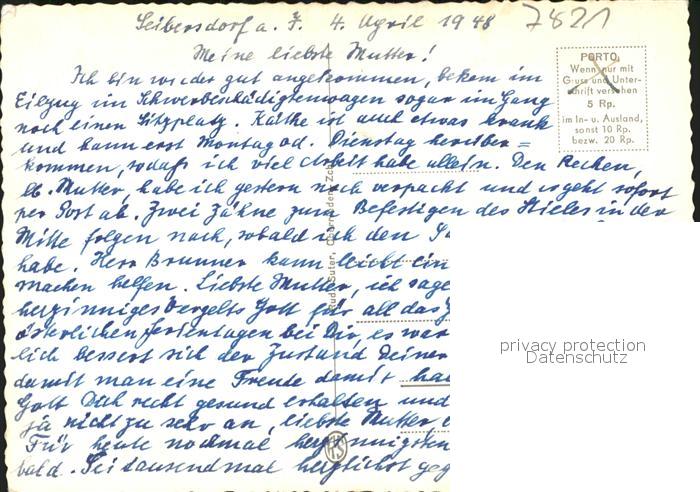 Seibersdorf a. I. 4. April 1948 7821
Meine liebste Mutter!
Ich bin wieder gut angekommen, bekam im
Eilzug im Schwerbeschädigtenwagen sogar im Gang
noch einen Sitzplatz. Käthe ist auch etwas krank
und kann erst Montag od. Dienstag herüber=
kommen, sodaß ich viel Arbeit habe allein. Den Rechen,
lb. Mutter, habe ich gestern noch verpackt und es geht sofort
per Post ab. Zwei Zähne zum Befestigen des Stieles in der
Mitte folgen nach, sobald ich den
habe. Herr Brunner kann leicht ein
machen helfen. Liebste Mutter, ich sage
herzinniges Vergelts Gott für all das
österlichen Ferientagen bei Dir, es war
lich bessert sich der Zustand Deiner
damit man eine Freude damit
Gott Dich recht gesund erhalten und
ja nicht zu sehr an, liebste Mutter,
Für heute nochmal herzinnigsten
bald. Sei tausendmal herzlichst
PORTO
Wenn nur mit
Gruss und Unter-
schrift versehen
5 Rp.
im In- u. Ausland,
sonst 10 Rp.
bezw. 20 Rp.
Rud. Suter, Oberrieden-Zch.
RS
privacy protection
Datenschutz